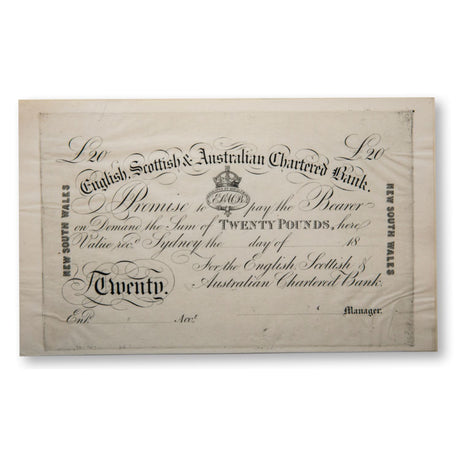 £20 £20
English, Scottish & Australian Chartered Bank.
I Promise to pay the Bearer
on Demand the Sum of TWENTY POUNDS, here
Value recd. Sydney the day of 18
For the English Scottish &
Twenty. Australian Chartered Bank.
Entd. Acct. Manager.
NEW SOUTH WALES
NEW SOUTH WALES